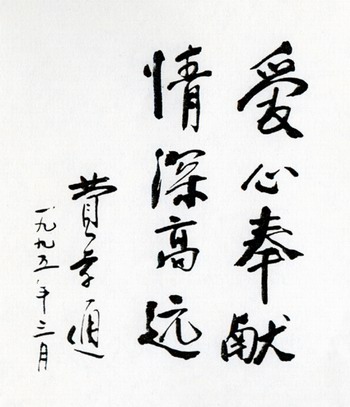 爱心奉献
情深高远
費孝通
一九九五年三月